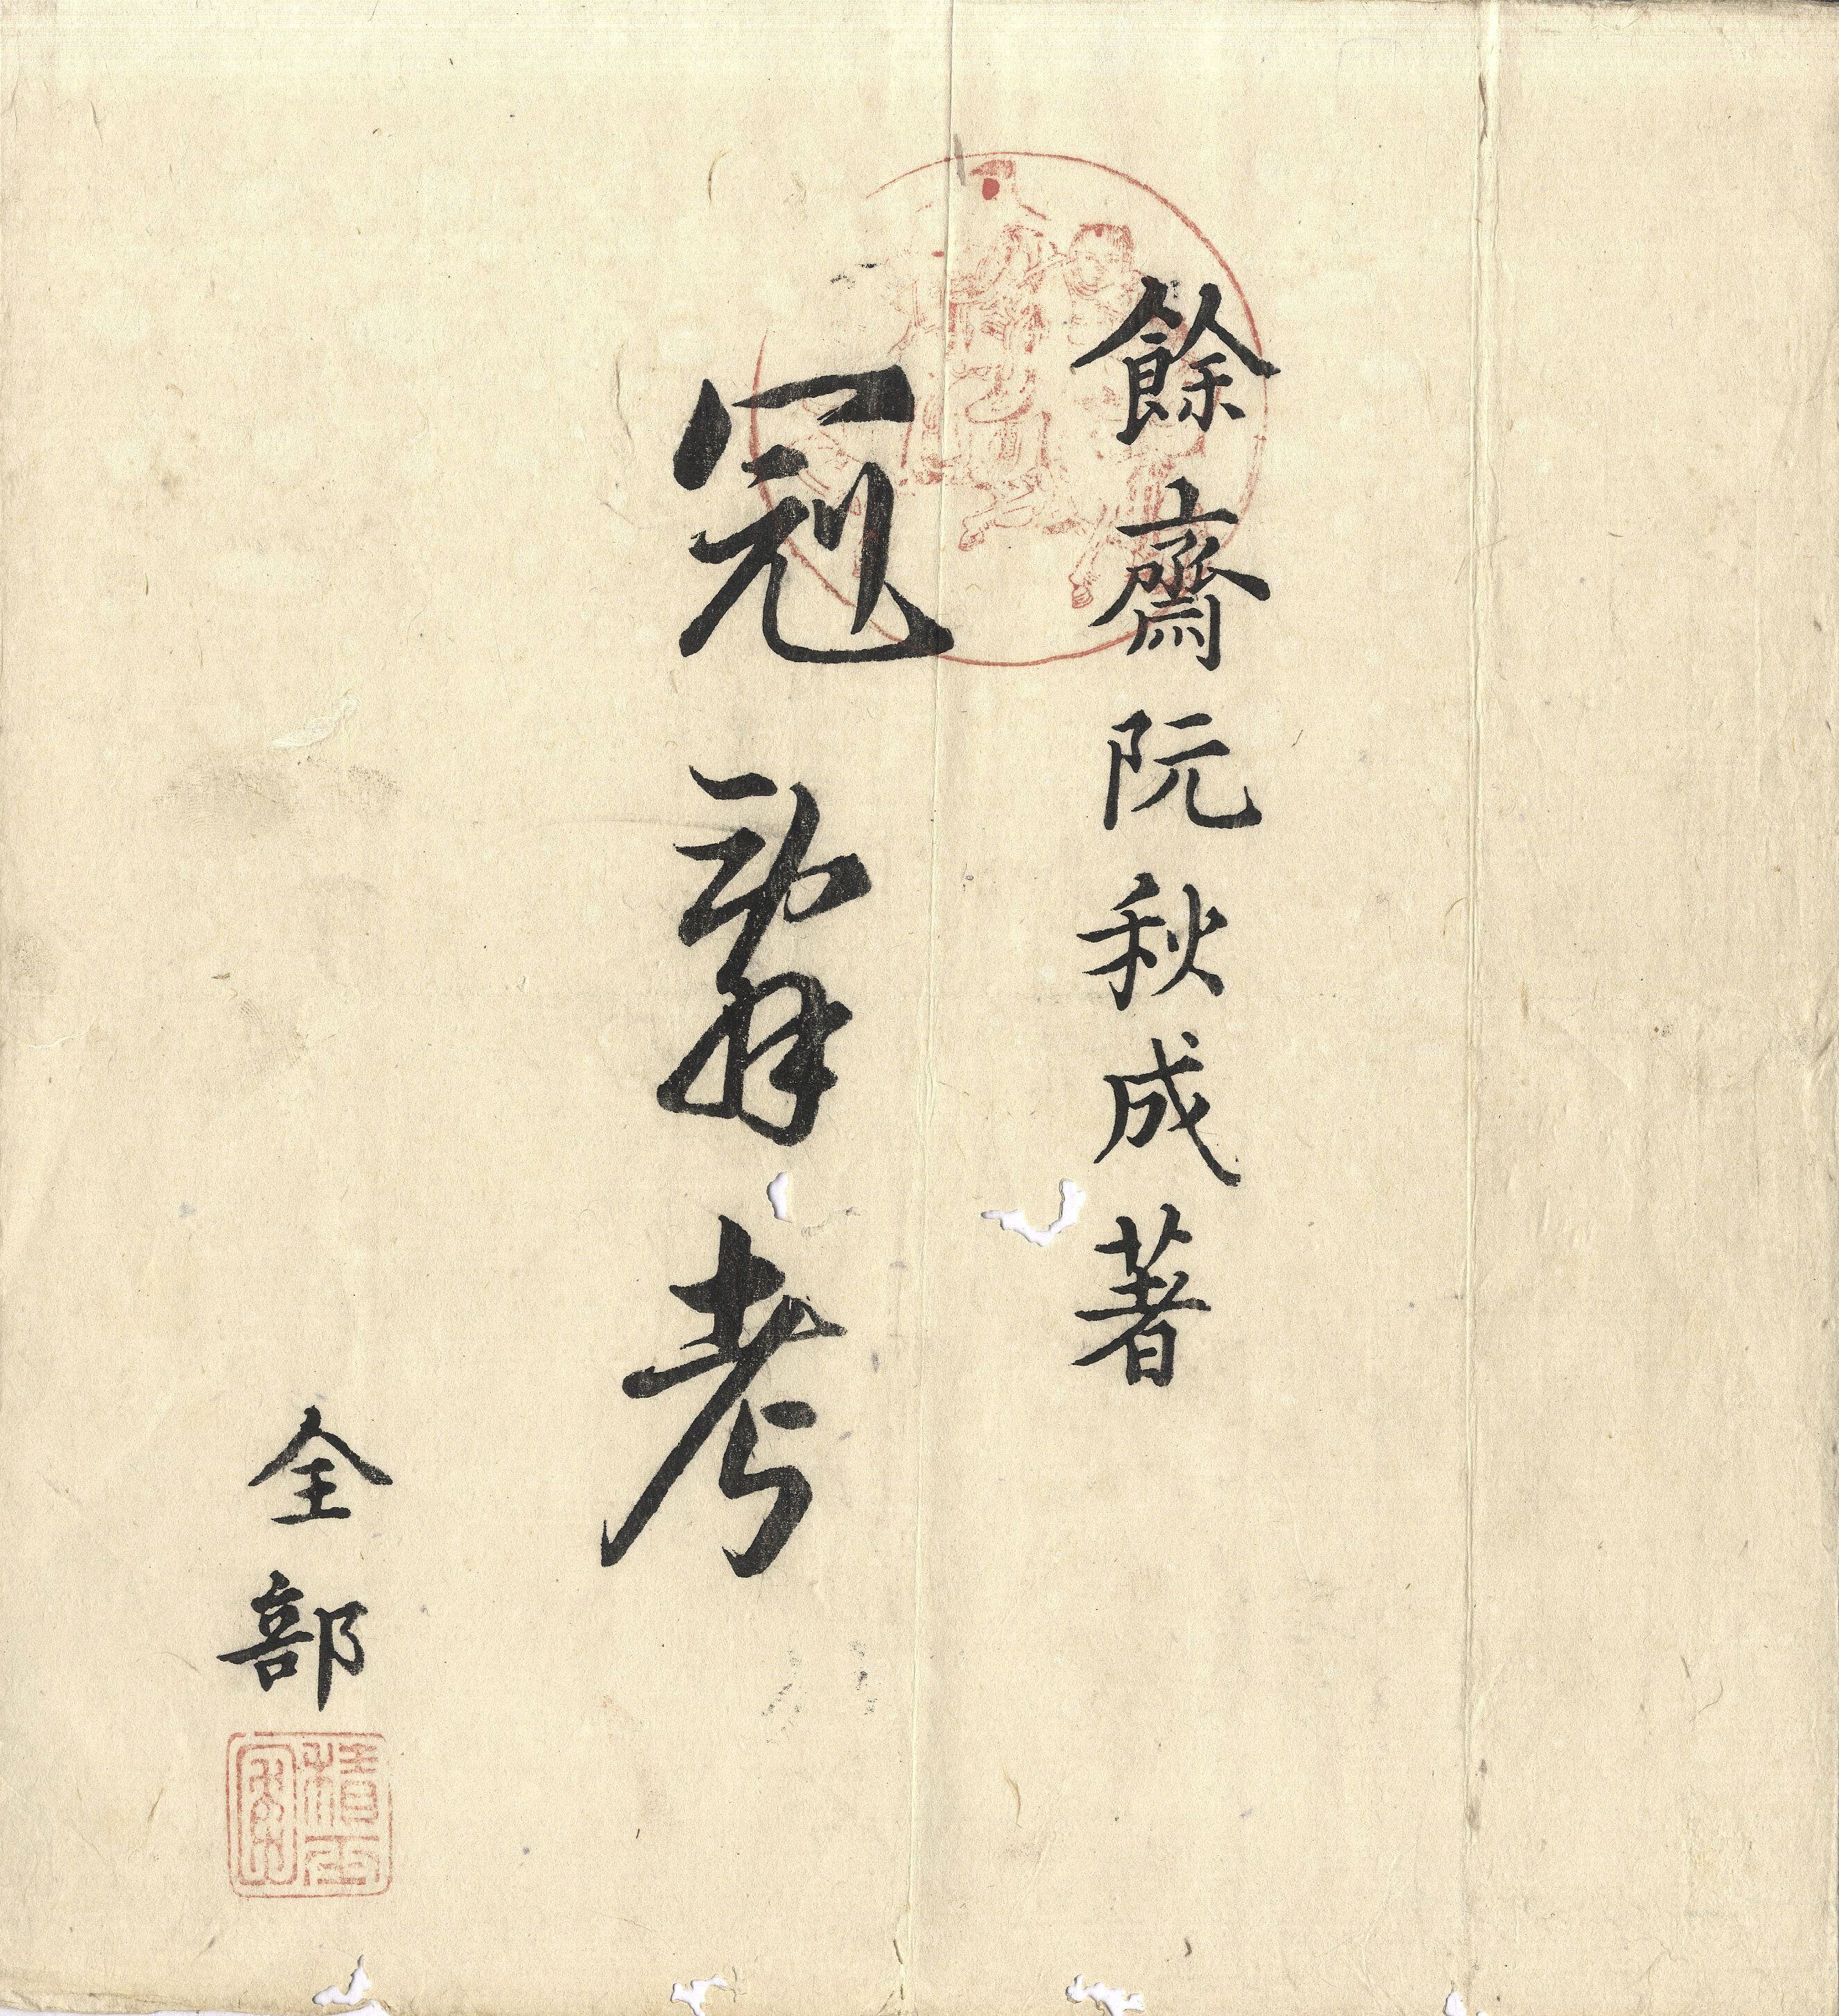 餘齋阮秋成著
冠辭考
全部